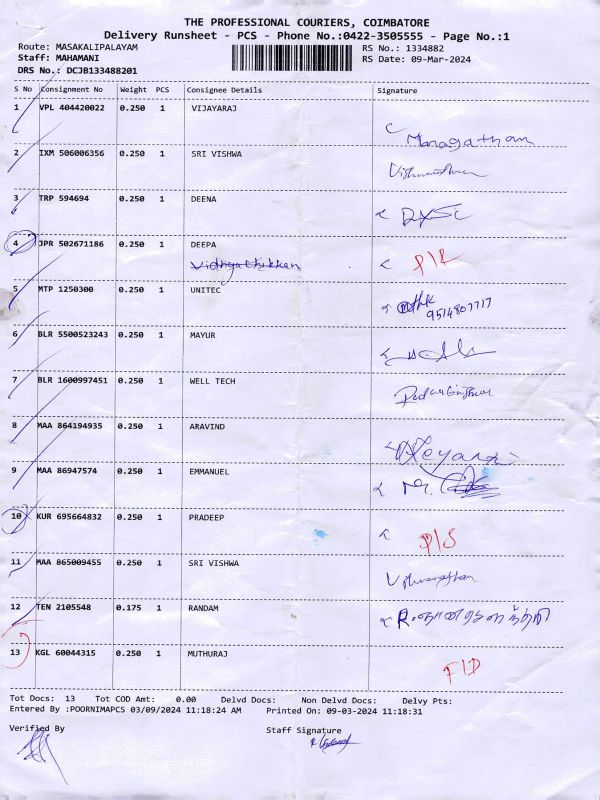 THE PROFESSIONAL COURIERS, COIMBATORE
Delivery Runsheet - PCS - Phone No.:0422-3505555 - Page No.:1
Route: MASAKALIPALAYAM RS No.: 1334882
Staff: MAHAMANI RS Date: 09-Mar-2024
DRS No.: DCJB133488201
S No Consignment No Weight PCS Consignee Details Signature
1 VPL 404420022 0.250 1 VIJAYARAJ
Maragatham
2 IXM 506006356 0.250 1 SRI VISHWA
3 TRP 594694 0.250 1 DEENA
4 JPR 502671186 0.250 1 DEEPA
5 MTP 1250300 0.250 1 UNITEC
9514807717
6 BLR 5500523243 0.250 1 MAYUR
7 BLR 1600997451 0.250 1 WELL TECH
8 MAA 864194935 0.250 1 ARAVIND
9 MAA 86947574 0.250 1 EMMANUEL
10 KUR 695664832 0.250 1 PRADEEP
11 MAA 865009455 0.250 1 SRI VISHWA
12 TEN 2105548 0.175 1 RANDAM
13 KGL 60044315 0.250 1 MUTHURAJ
Tot Docs: 13 Tot COD Amt: 0.00 Delvd Docs: Non Delvd Docs: Delvy Pts:
Entered By :POORNIMAPCS 03/09/2024 11:18:24 AM Printed On: 09-03-2024 11:18:31
Verified By Staff Signature